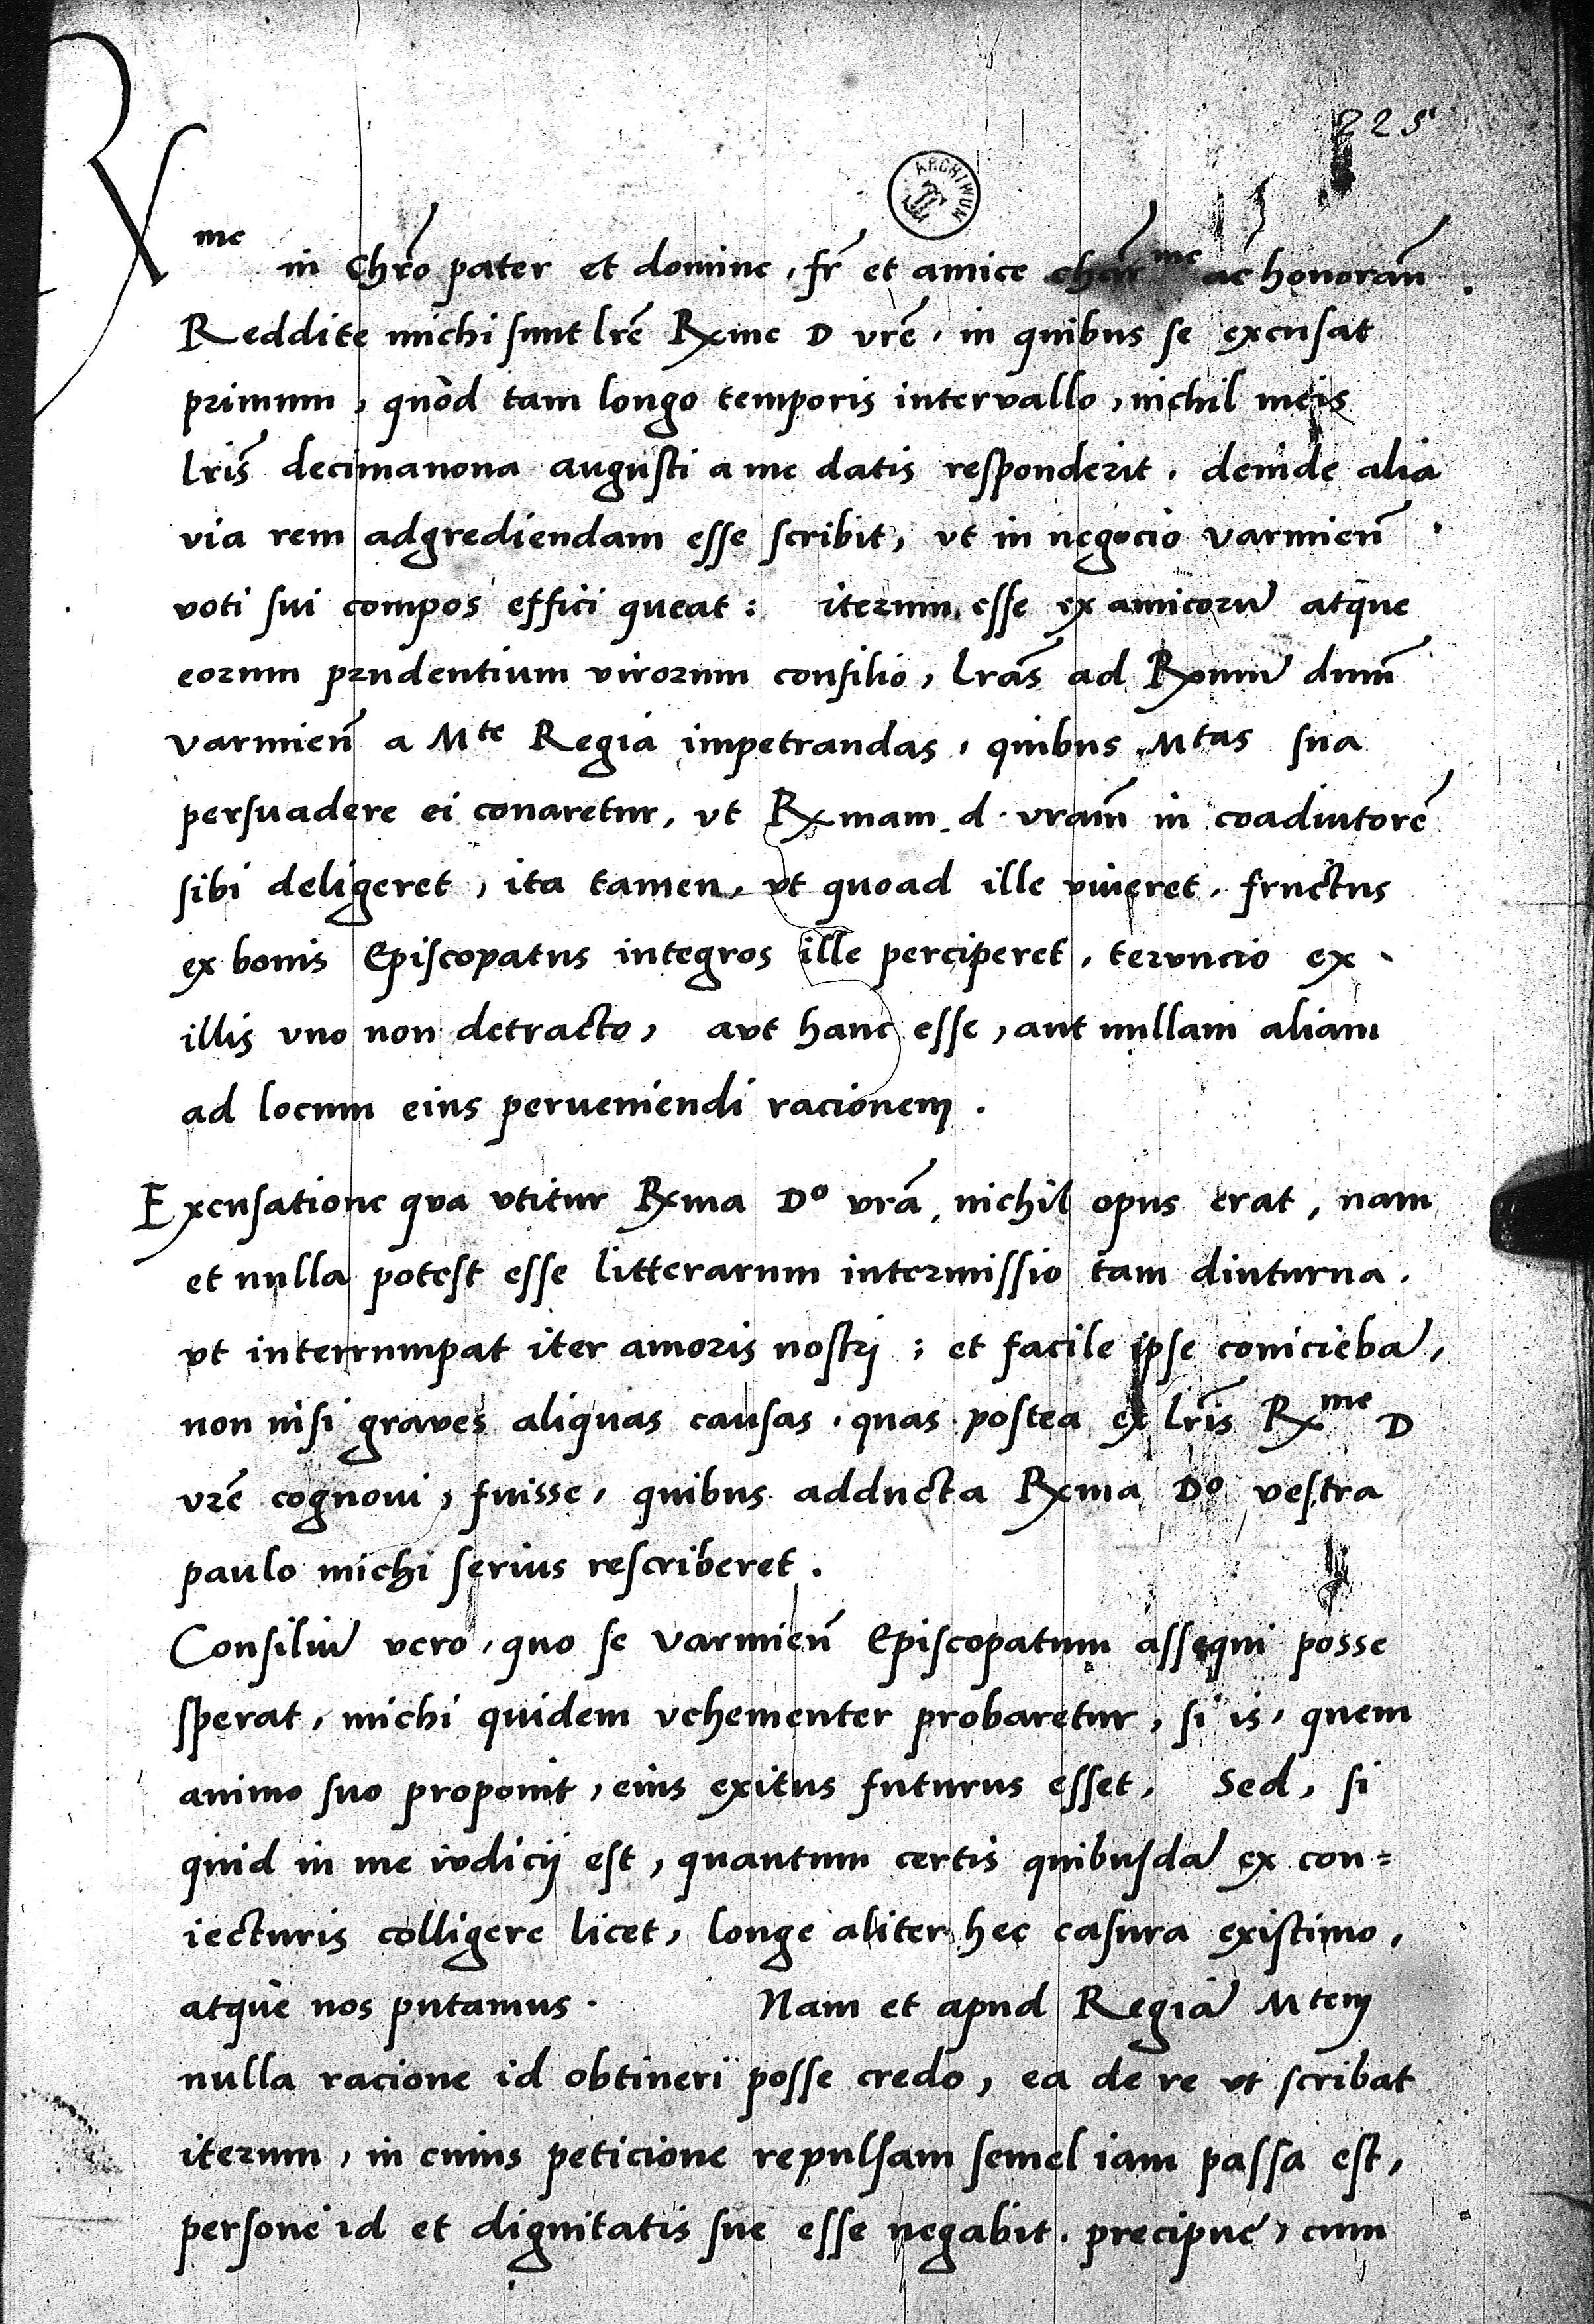 225
ARCHIWUM
Rme in Chro pater et domine, fr et amice charme ac honoran.
Reddite michi sunt lre Rxme D vre, in quibus se excusat
primum, quòd tam longo temporis intervallo, nichil meis
lris decimanona augusti a me datis responderit. deinde alia
via rem adgrediendam esse scribit, vt in negocio varmien
voti sui compos effici queat: iterum esse ex amicorum atque
eorum prudentium virorum consilio, lras ad Rxmum dnum
varmien a Mte Regia impetrandas, quibus Mtas sua
persuadere ei conaretur, vt Rxmam d. vram in coadiutore
sibi deligeret, ita tamen, vt quoad ille viueret, fructus
ex bonis Episcopatus integros ille perciperet, teruncio ex
illis vno non detracto, avt hanc esse, aut nullam aliam
ad locum eius perueniendi racionem.
Excusatione qva vtitur Rxma Do vra, nichil opus erat, nam
et nulla potest esse litterarum intermissio tam diuturna.
vt interrumpat iter amoris nostrj; et facile ipse coniciebam,
non nisi graves aliquas causas, quas postea ex lris Rxme D
vre cognoui, fuisse, quibus adducta Rxma Do vestra
paulo michi serius rescriberet.
Consilium vero, quo se varmien Episcopatum assequi posse
sperat, michi quidem vehementer probaretur, si is, quem
animo suo proponit, eius exitus futurus esset, Sed, si
quid in me ivdicij est, quantum certis quibusdam ex con=
iecturis colligere licet, longe aliter hec casura existimo,
atque nos putamus. Nam et apud Regiam Mtem
nulla racione id obtineri posse credo, ea de re vt scribat
iterum, in cuius peticione repulsam semel iam passa est,
persone id et dignitatis sue esse negabit. precipue, cum